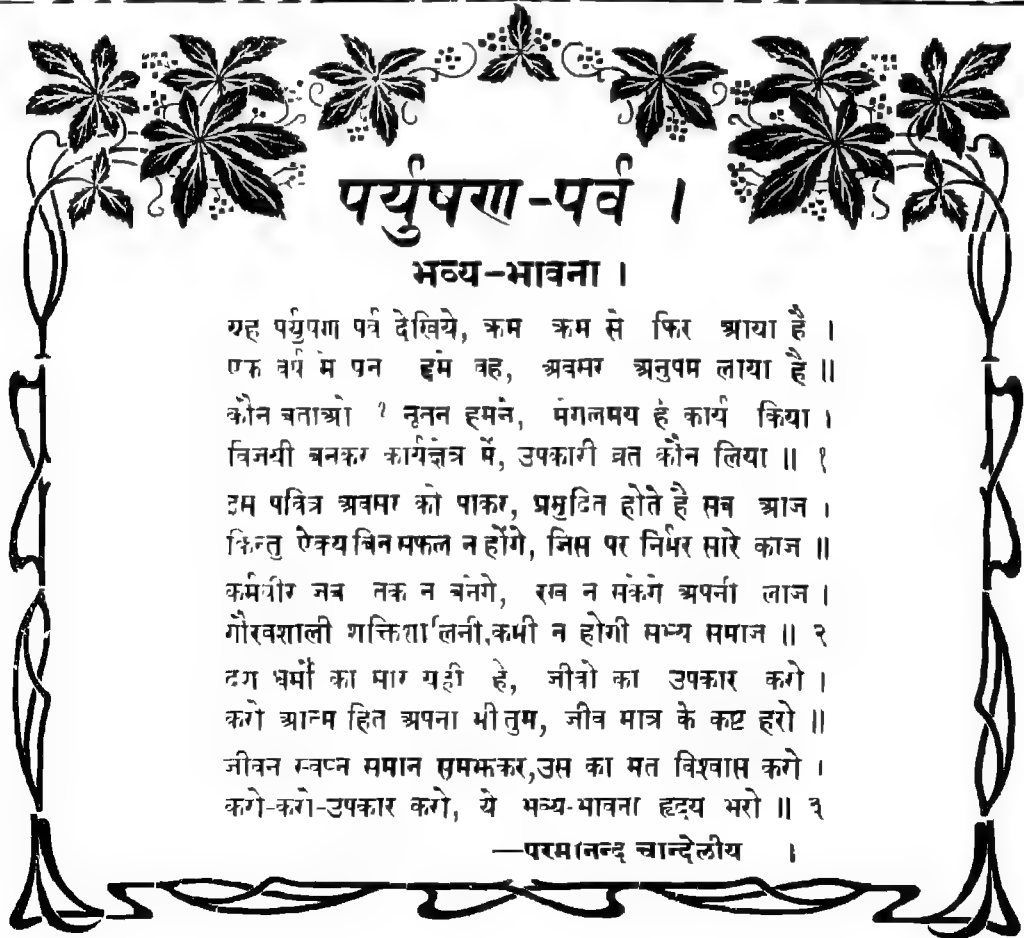 पर्युषण-पर्व ।
भव्य-भावना ।
यह पर्युषण पर्व देखिये, क्रम क्रम से फिर आया है ।
एक वर्ष में पुन हमें वह, अवसर अनुपम लाया है ॥
कौन बताओ ? नूतन हमने, मंगलमय है कार्य किया ।
विजयी बनकर कार्यक्षेत्र में, उपकारी व्रत कौन लिया ॥ १
इस पवित्र अवसर को पाकर, प्रमुदित होते है सब आज ।
किन्तु ऐक्य बिन सफल न होंगे, जिस पर निर्भर सारे काज ॥
कर्मवीर जब तक न बनेंगे, रख न सकेंगे अपनी लाज ।
गौरवशाली शक्तिशालिनी, कभी न होगी सभ्य समाज ॥ २
दश धर्मों का सार यही है, जीवो का उपकार करो ।
करो आत्म हित अपना भी तुम, जीव मात्र के कष्ट हरो ॥
जीवन स्वप्न समान समझकर, उस का मत विश्वास करो ।
करो-करो-उपकार करो, ये भव्य-भावना हृदय भरो ॥ ३
—परमानन्द चान्देलीय ।